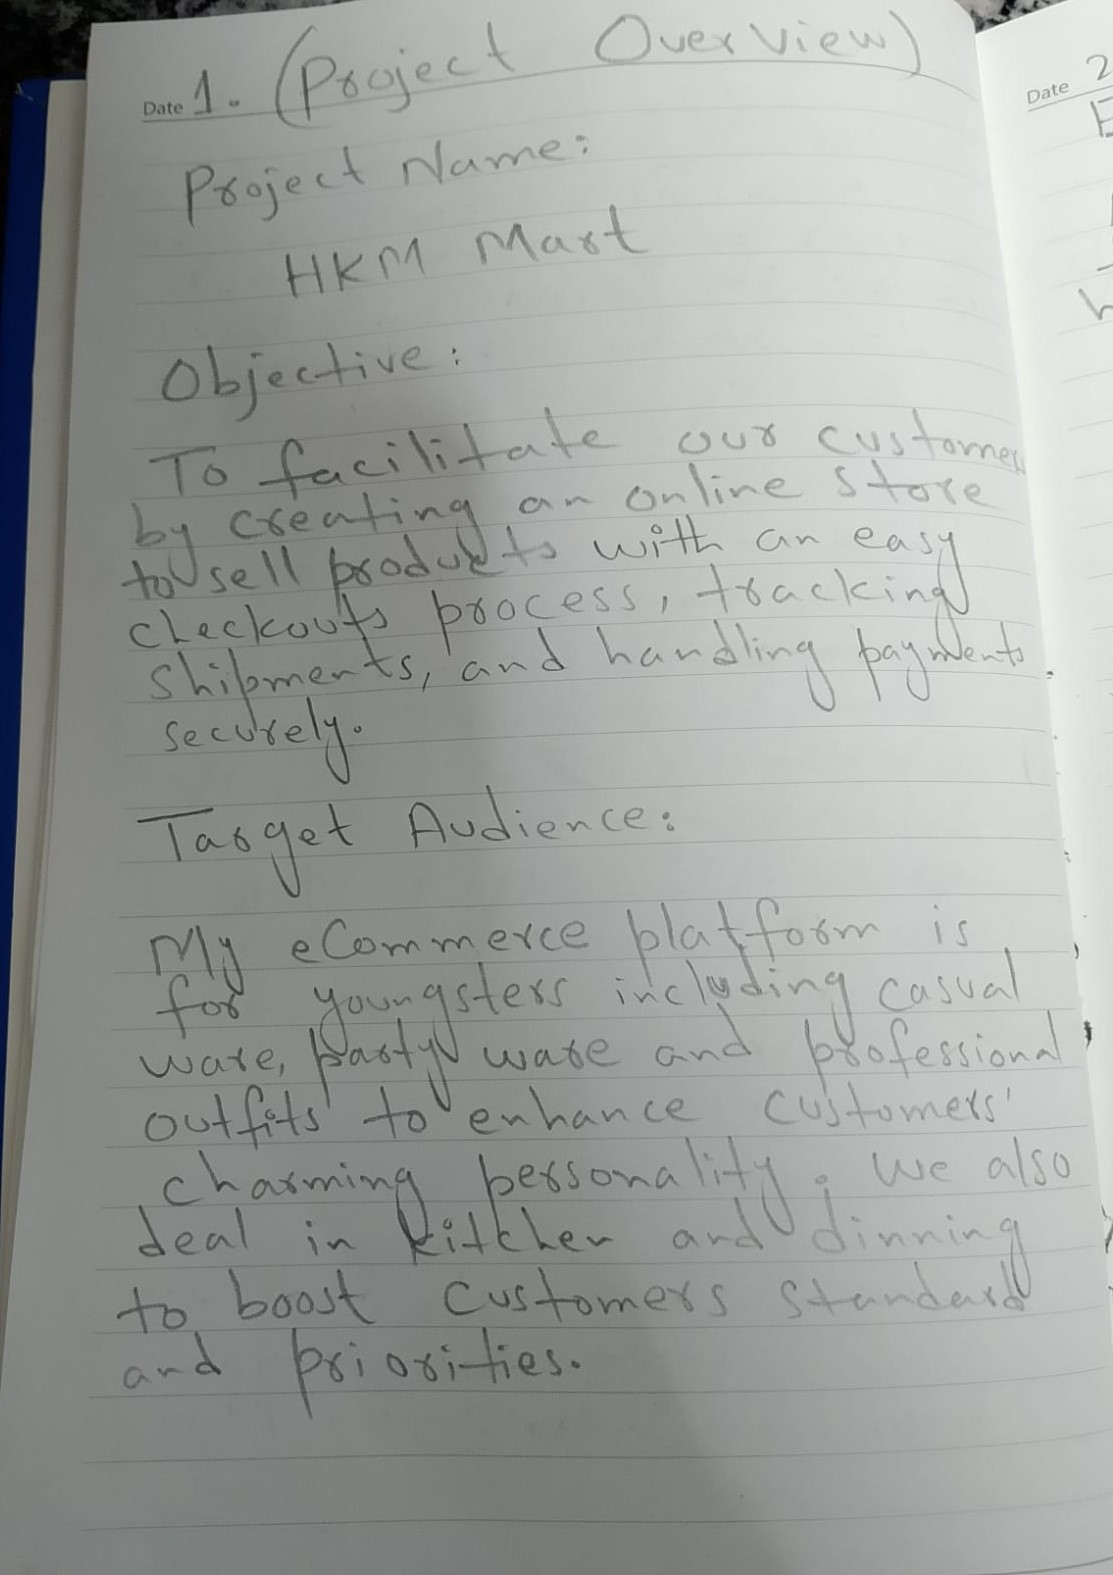 Date 1. (Project Overview)
Project Name:
HKM Mart
Objective:
To facilitate our customers
by creating an online store
to sell products with an easy
checkouts process, tracking
shipments, and handling payments
securely.
Target Audience:
My eCommerce platform is
for youngsters including casual
ware, party ware and professional
outfits to enhance customers'
charming personality. We also
deal in kitchen and dinning
to boost customers standard
and priorities.
Date 2